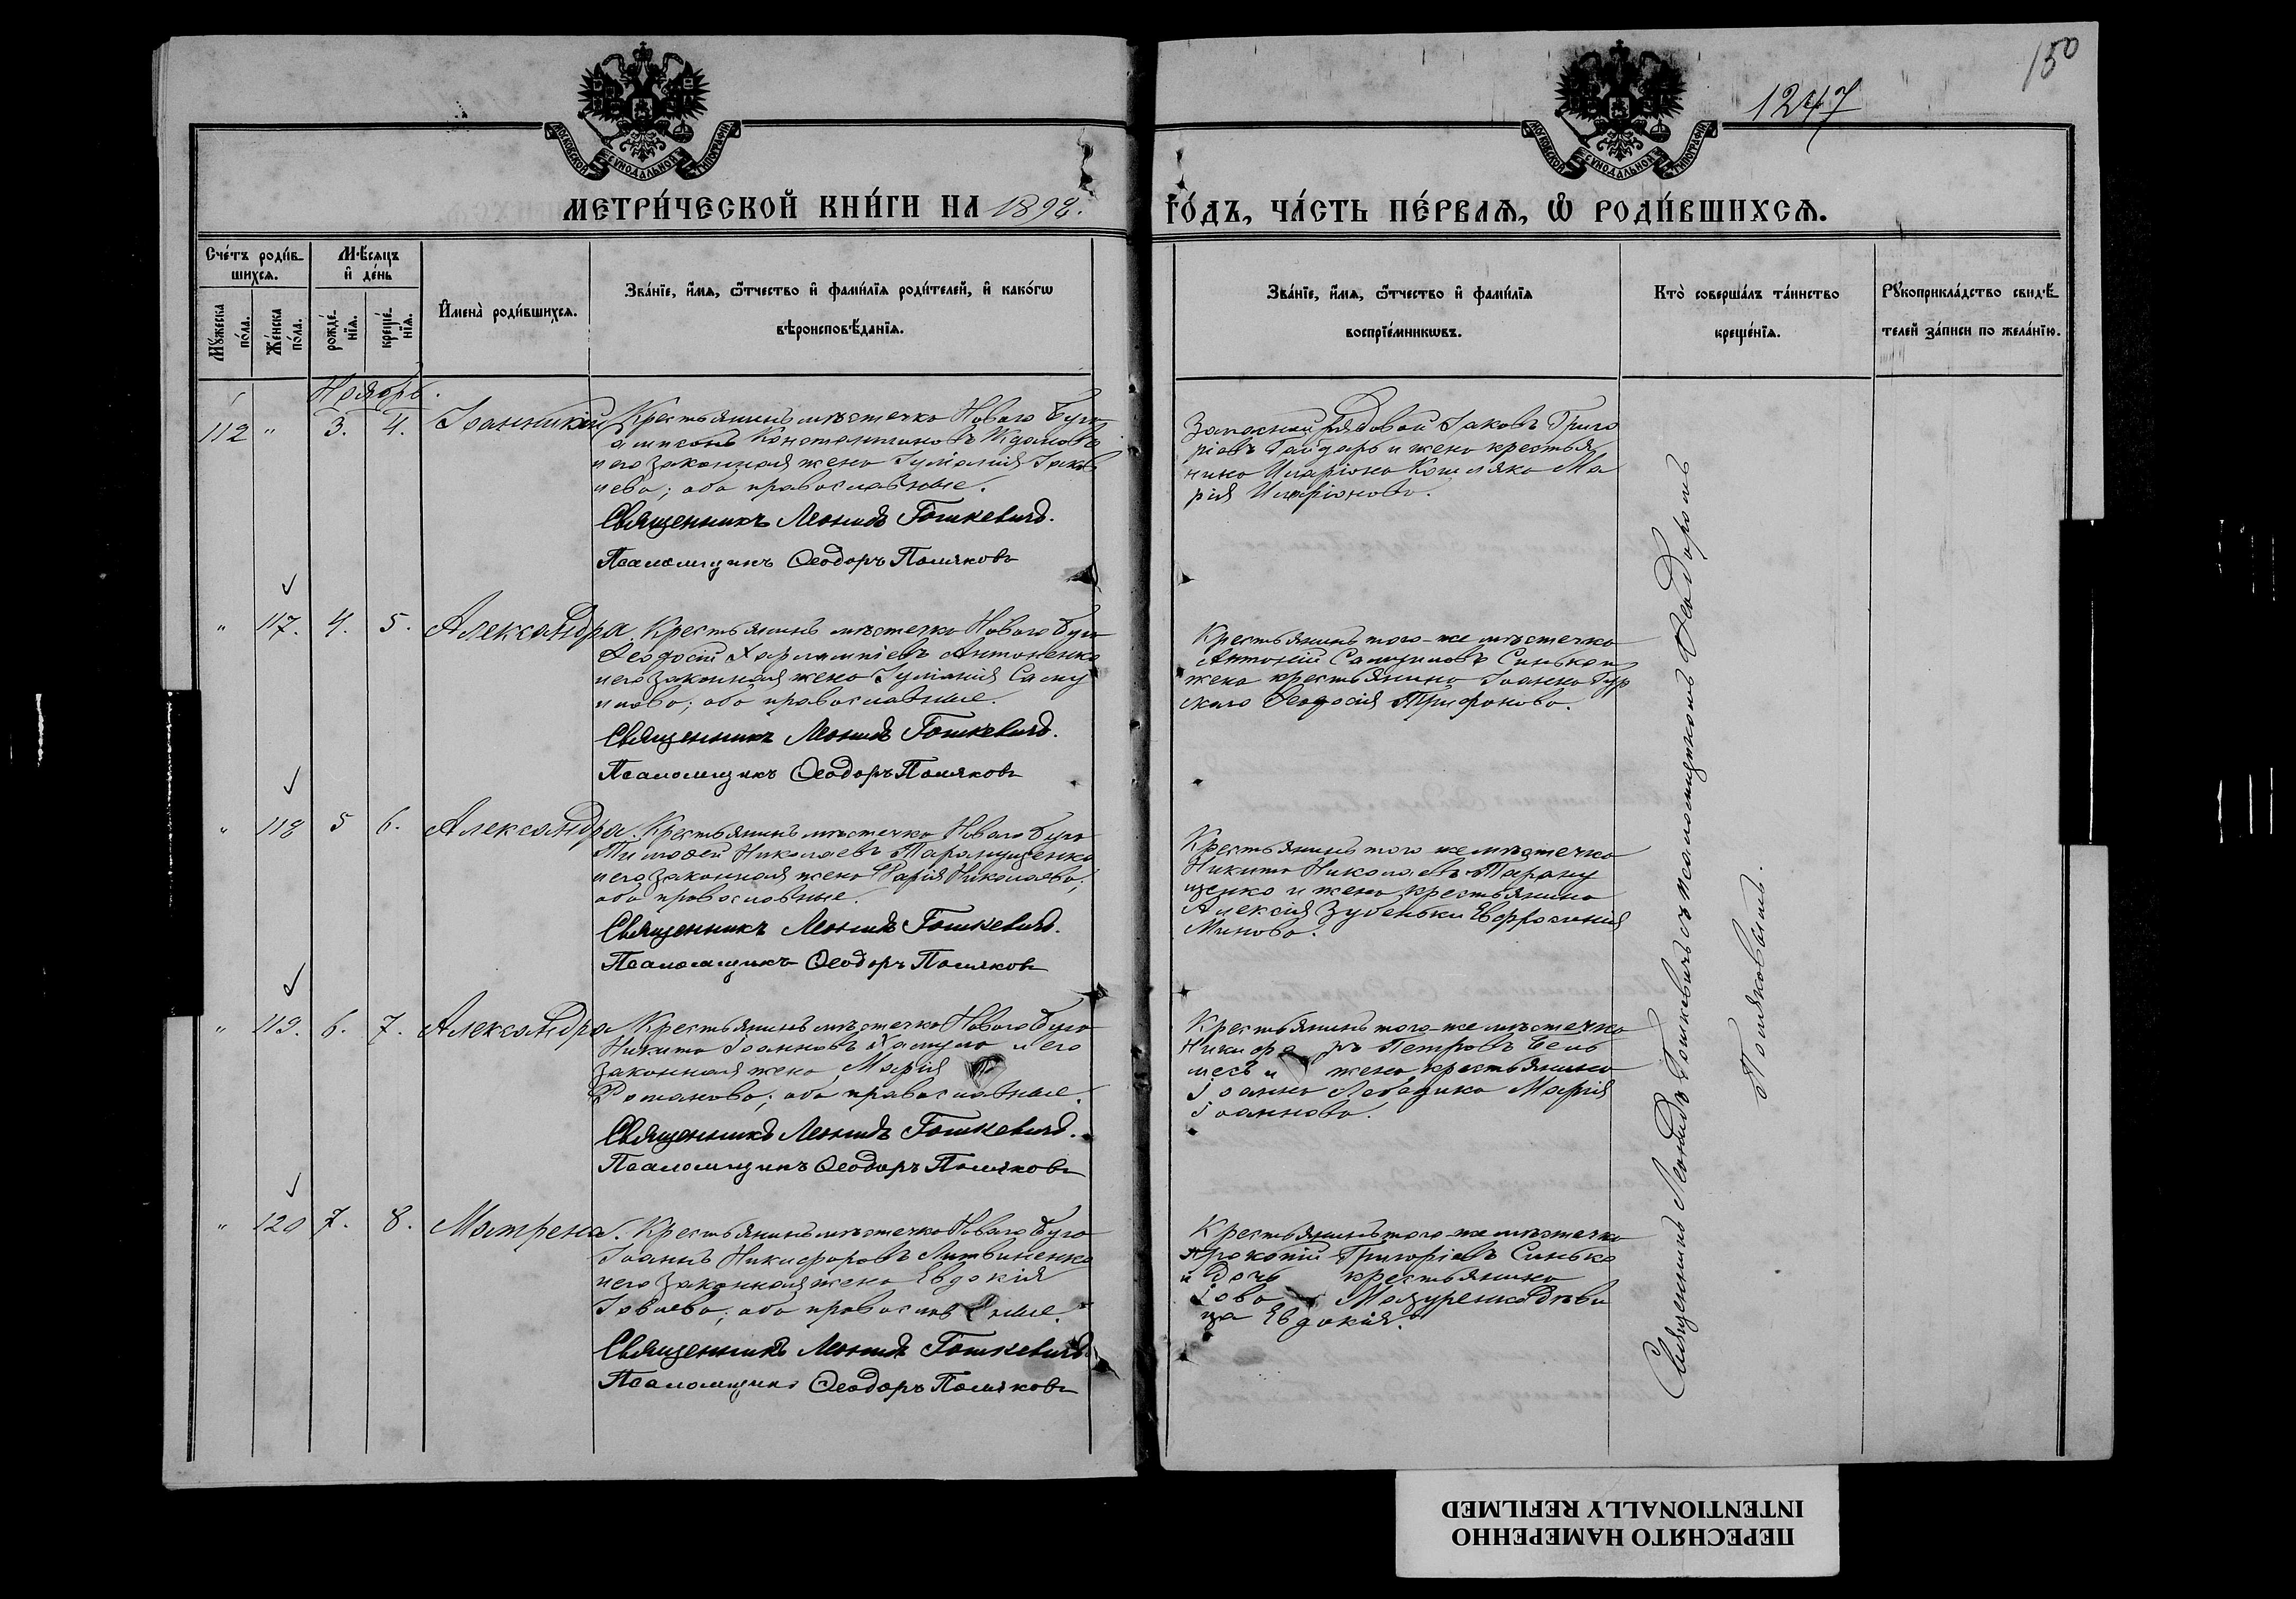 150
1247
МОСКОВСКОЙ СѴНОДАЛЬНОЙ ТИПОГРАФІИ
МОСКОВСКОЙ СѴНОДАЛЬНОЙ ТИПОГРАФІИ
МЕТРИ́ЧЕСКОЙ КНИ́ГИ НА 1892. ГО́ДЪ, ЧА́СТЬ ПЕ́РВАѦ, Ѡ҆ РОДИ́ВШИХСѦ.
Сче́тъ роди́в-
шихсѧ.
Мꙋ́жеска
по́ла.
Же́нска
по́ла.
Мѣ́сѧцъ
и҆ де́нь
рожде́-
нїѧ.
креще́-
нїѧ.
И҆мена̀ роди́вшихсѧ.
Зва́нїе, и҆́мѧ, ѻ҆́тчество и҆ фами́лїѧ роди́телей, и҆ како́гѡ
вѣроисповѣ́данїѧ.
Зва́нїе, и҆́мѧ, ѻ҆́тчество и҆ фами́лїѧ
воспрїе́мникѡвъ.
Кто̀ соверша́лъ та́инство
креще́нїѧ.
Рꙋкоприкла́дство свидѣ́-
телей за́писи по жела́нїю.
Ноябрь.
112 " 3. 4. Іоанникій
Крестьянинъ мѣстечка Новаго Буга
Константиновъ
и его законная жена Іуліанія Іаковлева; оба православные.
Священникъ Леонидъ Гошкевичъ.
Псаломщикъ Ѳеодоръ Поляковъ
Запасный рядовой Іаковъ Григо
ріевъ Гайдаръ и жена крестья
нина Иларіона Кошляка Ма
рія Иларіонова.
" 117. 4. 5. Александра.
Крестьянинъ мѣстечка Новаго Буга
Ѳеодосій Харлампіевъ Антоненко
и его законная жена Іуліанія Саму
илова; оба православные.
Священникъ Леонидъ Гошкевичъ.
Псаломщикъ Ѳеодоръ Поляковъ
Крестьянинъ того-же мѣстечка
Антоній Самуиловъ Синько и
жена крестьянина Іоанна Гур
скаго Ѳеодосія Трифонова.
" 118 5 6. Александра.
Крестьянинъ мѣстечка Новаго Буга
Тимоѳей Николаевъ Паращенко
и его законная жена Марія Николаева;
оба православные.
Священникъ Леонидъ Гошкевичъ.
Псаломщикъ Ѳеодоръ Поляковъ
Крестьянинъ того же мѣстечка
Никита Николаевъ Паращенко
и жена крестьянина
Алексія Зубеньки Евфросинія
Минова.
" 119. 6. 7. Александра
Крестьянинъ мѣстечка Новаго Буга
Никита Іоанновъ и его
законная жена Марія
Романова; оба православные.
Священникъ Леонидъ Гошкевичъ.
Псаломщикъ Ѳеодоръ Поляковъ
Крестьянинъ того-же мѣстечка
Никифоръ Петровъ
и жена крестьянина
Іоанна Лебедика Марія
Іоаннова.
" 120 7. 8. Матрена.
Крестьянинъ мѣстечка Новаго Буга
Іоаннъ Никифоровъ Литвиненко
и его законная жена Евдокія
Іовлева; оба православные.
Священникъ Леонидъ Гошкевичъ
Псаломщикъ Ѳеодоръ Поляковъ
Крестьянинъ того-же мѣстечка
Прокопій Григоріевъ Синько
и дочь крестьянина
Іова Мазуренка дѣви
ца Евдокія.
Священникъ Леонидъ Гошкевичъ съ псаломщикомъ Ѳеодоромъ
Поляковымъ.
ПЕРЕСНЯТО НАМЕРЕННО
INTENTIONALLY REFILMED